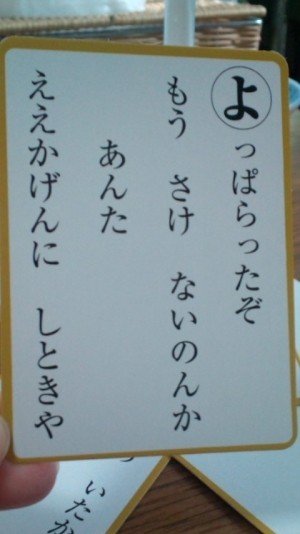 よっぱらったぞ
もう さけ ないのんか
あんた
ええかげんに しときや
いたか